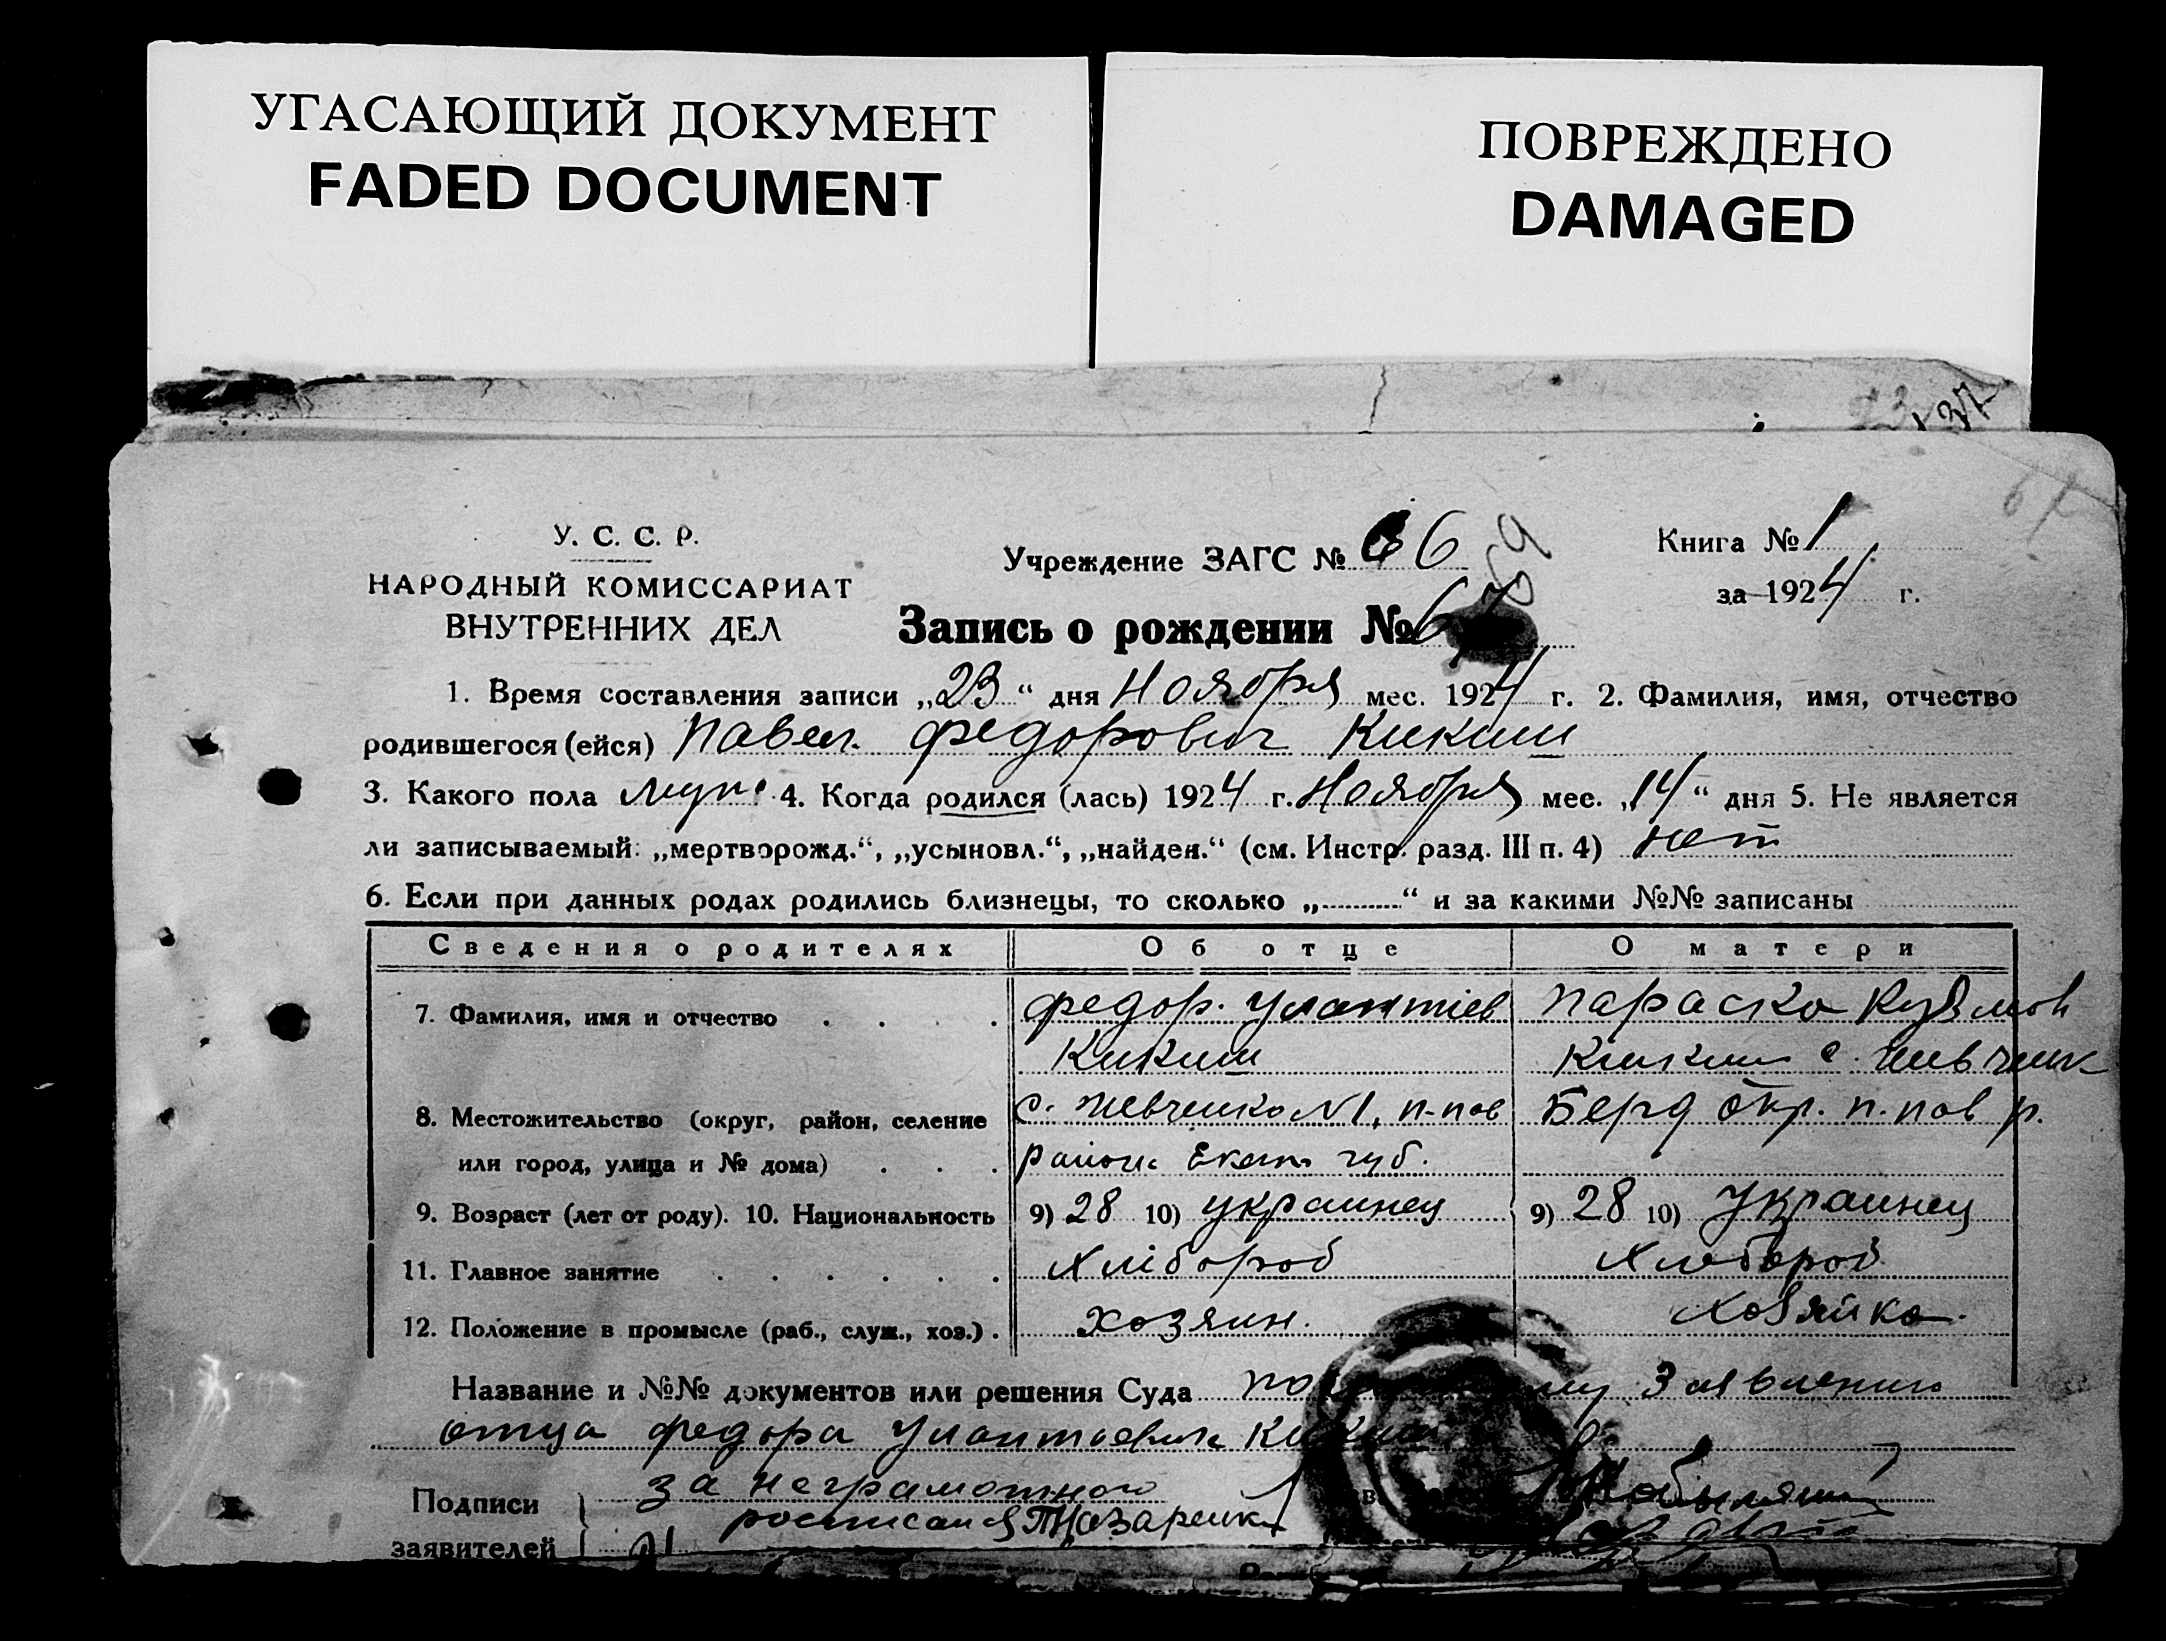 УГАСАЮЩИЙ ДОКУМЕНТ
FADED DOCUMENT
ПОВРЕЖДЕНО
DAMAGED
137
У. С. С. Р.
НАРОДНЫЙ КОМИССАРИАТ
ВНУТРЕННИХ ДЕЛ
Учреждение ЗАГС № 66
Книга № 1
за 1924 г.
Запись о рождении № 67
1. Время составления записи „23“ дня Ноября мес. 1924 г. 2. Фамилия, имя, отчество
родившегося (ейся) Павел Федорович Кикиш
3. Какого пола муж. 4. Когда родился (лась) 1924 г. Ноября мес. „14“ дня 5. Не является
ли записываемый: „мертворожд.“, „усыновл.“, „найден.“ (см. Инстр. разд. III п. 4) нет
6. Если при данных родах родились близнецы, то сколько „..........“ и за какими №№ записаны
Сведения о родителях Об отце О матери
7. Фамилия, имя и отчество . . . . Федор. Улантіев Параска Кузьмов
Кикиш Кикиш с. Шевченк
8. Местожительство (округ, район, селение с. Шевченко N1, п-пов Берд окр. п. пов р.
или город, улица и № дома) . . . района Екат. губ.
9. Возраст (лет от роду). 10. Национальность 9) 28 10) украинец 9) 28 10) Украинец
11. Главное занятие . . . . . . Хлібороб Хлебороб
12. Положение в промысле (раб., служ., хоз.) . Хозяин. Хозяйка.
Название и №№ документов или решения Суда Заявлению
отца Федора Улантиевича Кикиш
Подписи за неграмотного
росписался Назаренко
заявителей